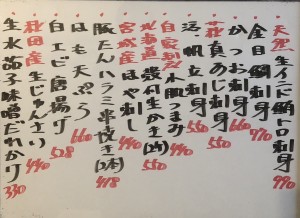 天然 生インド鮪トロ刺身 990
金目鯛刺身 770
かつお刺身 660
萩 真あじ刺身 550
活 帆立刺身 550
自家製 〆鯖つまみ 440
北海道 殻付生かき(2ヶ) 550
宮城産 ほや刺し 440
豚たんハラミ串焼き(2本) 418
はも天ぷら 660
白エビ唐揚げ 528
秋田産 生じゅんさい 440
生水茄子味噌だれかけ 330